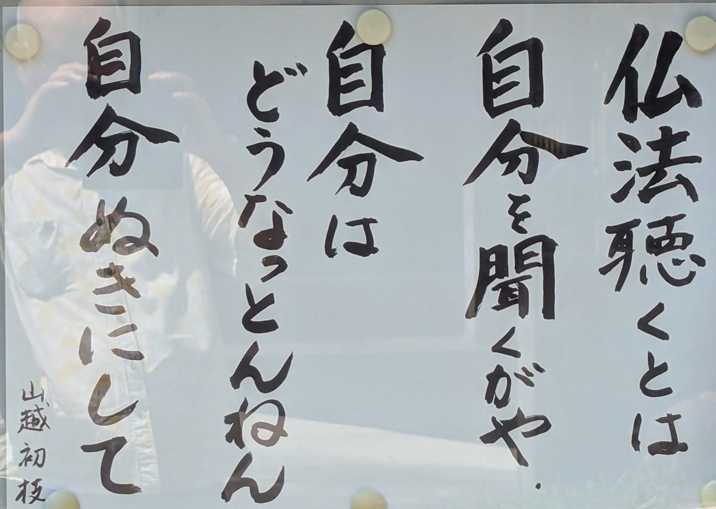 仏法聴くとは
自分を聞くがや.
自分は
どうなっとんねん
自分ぬきにして
山越初枝